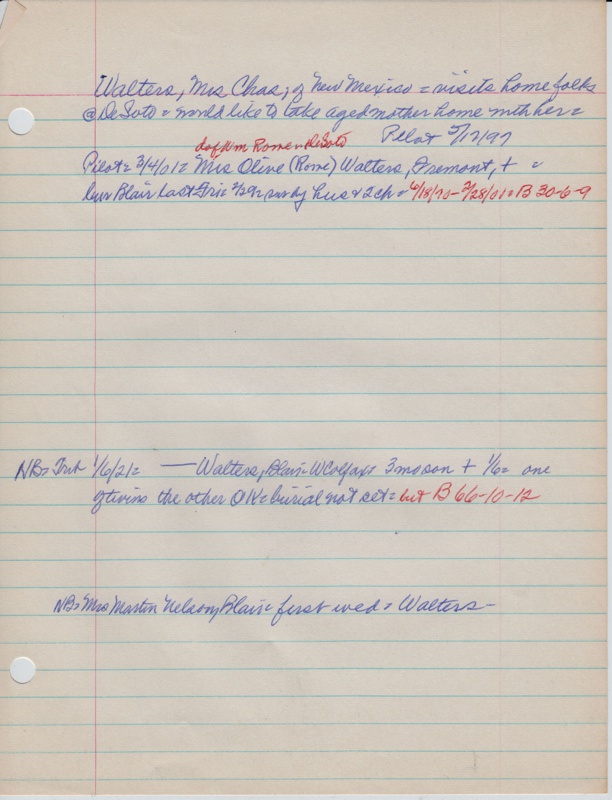 Walters, Mrs Chas, of New Mexico = visits home folks
@ DeSoto = would like to take aged mother home with her =
Pilot 5/12/97
d of Wm Rome DeSoto
Pilot = 3/4/01 = Mrs Olive (Rome) Walters, Fremont, + =
bur Blair last Fri = surv by hus & 2 ch = 6/18/70 - 2/28/01 = B 30-6-9
NB = Trib 1/6/21 = — Walters, Blair = W Colfax = 3 mo son + 1/6 = one
of twins the other OK = burial not set = but B 66-10-12
NB = Mrs Martin Nelson, Blair = first wed = Walters -